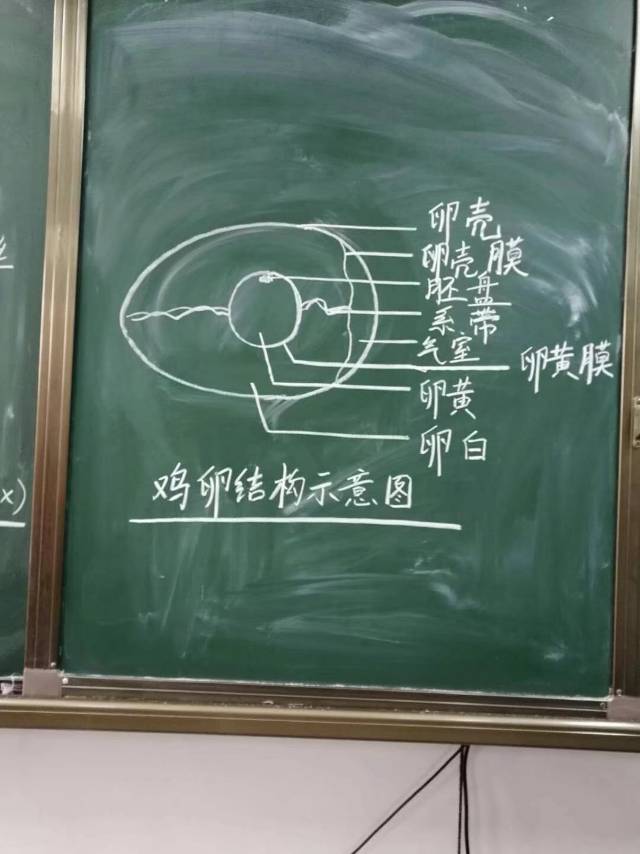 卵壳
卵壳膜
胚盘
系带
气室
卵黄膜
卵黄
卵白
鸡卵结构示意图
x)